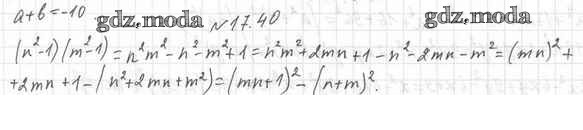 a+b=-10
gdz.moda №17.40 gdz.moda
(n²-1)(m²-1)=n²m²-n²-m²+1=n²m²+2mn+1-n²-2mn-m²=(mn)²+
+2mn+1-(n²+2mn+m²)=(mn+1)²-(n+m)².